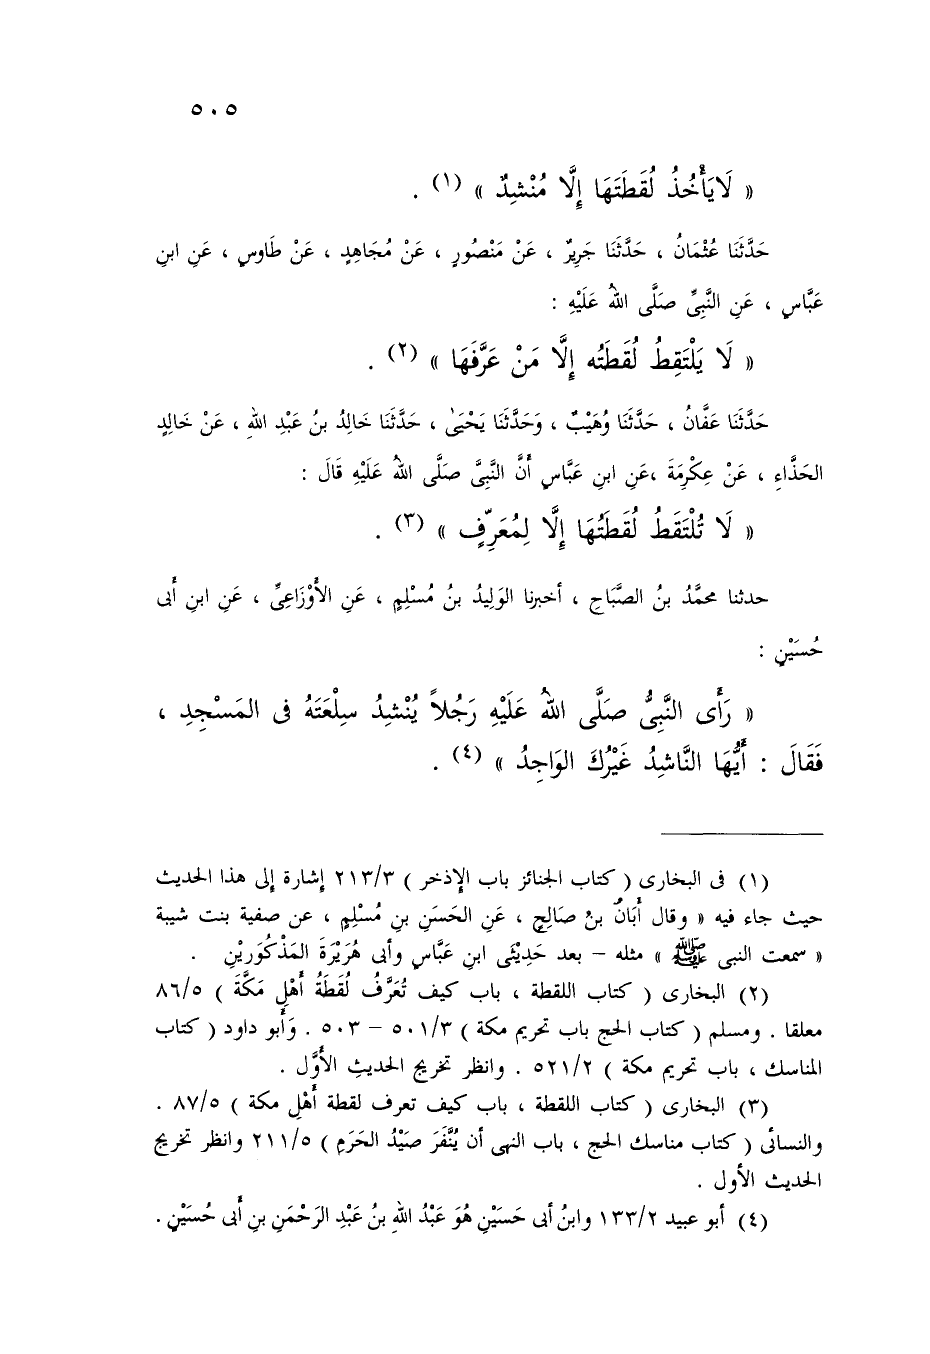 ٥٠٥
« لَايَأْخُذُ لُقَطَتَهَا إِلَّا مُنْشِدٌ » (١) .
حَدَّثَنَا عُثْمَانُ ، حَدَّثَنَا جَرِيرٌ ، عَنْ مَنْصُورٍ ، عَنْ مُجَاهِدٍ ، عَنْ طَاوسٍ ، عَنِ ابنِ
عَبَّاسٍ ، عَنِ النَّبِىِّ صَلَّى اللهُ عَلَيْهِ :
« لَا يَلْتَقِطُ لُقَطَتَه إِلَّا مَنْ عَرَّفَهَا » (٢) .
حَدَّثَنَا عَفَّانُ ، حَدَّثَنَا وُهَيْبٌ ، وَحَدَّثَنَا يَحْيَىٰ ، حَدَّثَنَا خَالِدُ بنُ عَبْدِ اللهِ ، عَنْ خَالِدٍ
الحَذَّاءِ ، عَنْ عِكْرِمَةَ ،عَنِ ابنِ عَبَّاسٍ أَنَّ النَّبِىَّ صَلَّى اللهُ عَلَيْهِ قَالَ :
« لَا تُلْتَقَطُ لُقَطَتُهَا إِلَّا لِمُعَرِّفٍ » (٣) .
حدثنا محمَّدُ بنُ الصبَّاحِ ، أخبرنا الوَلِيدُ بنُ مُسْلِمٍ ، عَنِ الأَوْزَاعِىِّ ، عَنِ ابنِ أَبى
حُسَيْنٍ :
« رَأَى النَّبِىُّ صَلَّى اللهُ عَلَيْهِ رَجُلاً يُنْشِدُ سِلْعَتَهُ فى المَسْجِدِ ،
فَقَالَ : أَيُّهَا النَّاشِدُ غَيْرُكَ الوَاجِدُ » (٤) .
(١) فى البخارى ( كتاب الجنائز باب الإِذخر ) ٢١٣/٣ إِشارة إِلى هذا الحديث
حيث جاء فيه « وقال أَبَانُ بنُ صَالِحٍ ، عَنِ الحَسَنِ بنِ مُسْلِمٍ ، عن صفية بنت شيبة
« سمعت النبى ﷺ » مثله – بعد حَدِيثَى ابنِ عَبَّاسٍ وأبى هُرَيْرَةَ المَذْكُورَيْنِ .
(٢) البخارى ( كتاب اللقطة ، باب كيف تُعَرَّفُ لُقَطَةُ أَهْلِ مَكَّةَ ) ٨٦/٥
معلقا . ومسلم ( كتاب الحج باب تحريم مكة ) ٥٠١/٣ – ٥٠٣ . وَأَبو داود ( كتاب
المناسك ، باب تحريم مكة ) ٥٢١/٢ . وانظر تخريج الحديثِ الأَوَّل .
(٣) البخارى ( كتاب اللقطة ، باب كيف تعرف لقطة أَهْلِ مكة ) ٨٧/٥ .
والنسائى ( كتاب مناسك الحج ، باب النهى أن يُنَّفَرَ صَيْدُ الحَرَمِ ) ٢١١/٥ وانظر تخريج
الحديث الأول .
(٤) أبو عبيد ١٣٣/٢ وابنُ أبى حَسَيْنٍ هُوَ عَبْدُ اللهِ بنُ عَبْدِ الرَحْمَنِ بنِ أَبى حُسَيْنٍ .